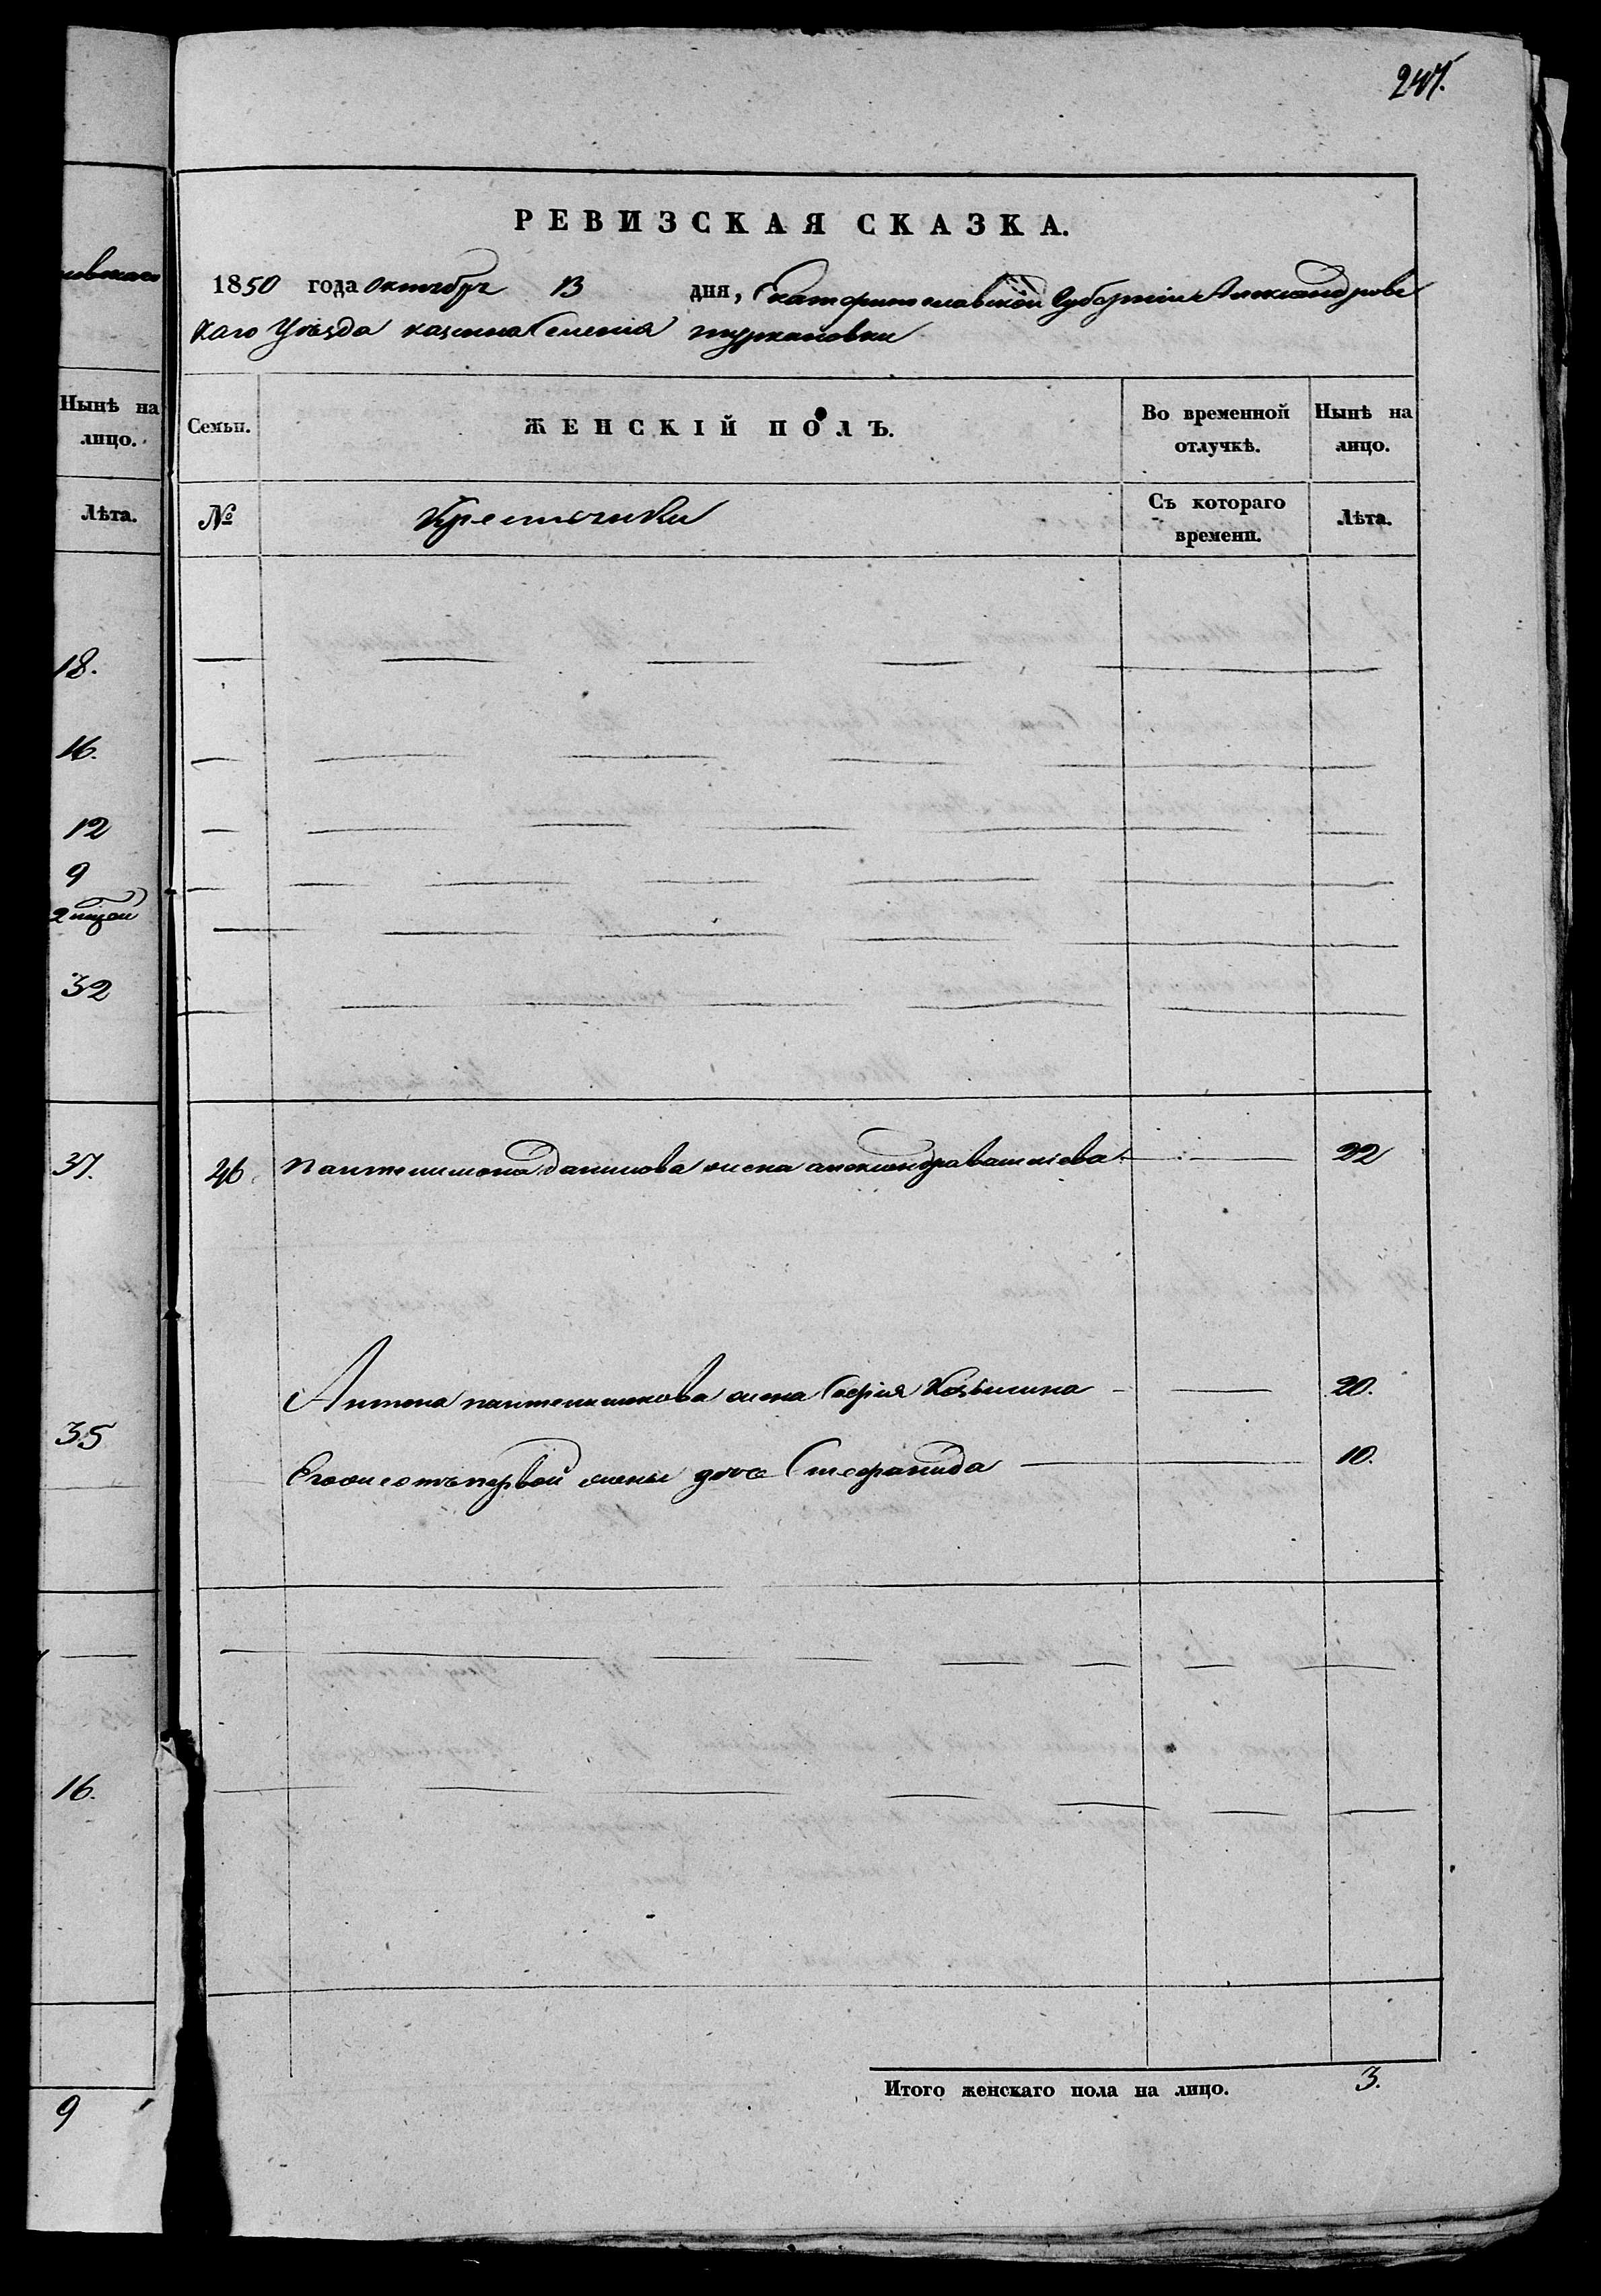 247.
РЕВИЗСКАЯ СКАЗКА.
1850 года Октября 13 дня, Екатеринославской Губернiи Александровс
каго Уѣзда казенна Селенiя туркановки
Нынѣ на лицо.
Лѣта.
Семьи. ЖЕНСКІЙ ПОЛЪ. Во временной отлучкѣ. Нынѣ на лицо.
№ Крестьянки Съ котораго времени. Лѣта.
18.
16.
12
9
32
37.
46. пантелимона данилова жена александра васильева 22
Антона пантелимонова жена Софiя Козьмина 20.
Егоже отъ первой жены дочь Стефанида 10.
35
16.
Итого женскаго пола на лицо. 3.
9